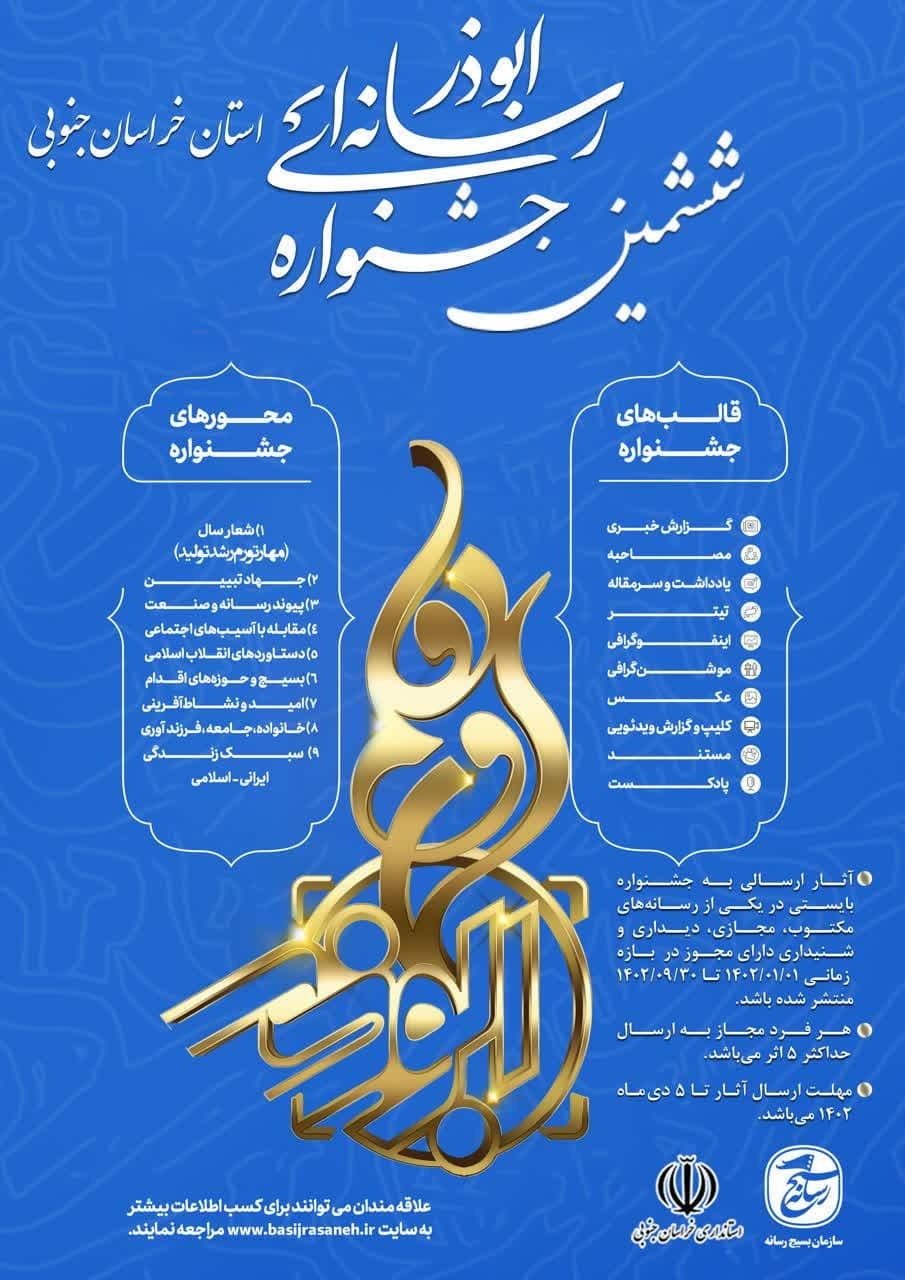 ششمین جشنواره
رسانه‌ای
ابوذر
استان خراسان جنوبی
قالب‌های
جشنواره
گزارش خبری
مصاحبه
یادداشت و سرمقاله
تیتر
اینفوگرافی
موشن‌گرافی
عکس
کلیپ و گزارش ویدئویی
مستند
پادکست
محورهای
جشنواره
۱) شعار سال
(مهار تورم رشد تولید)
۲) جهاد تبیین
۳) پیوند رسانه و صنعت
۴) مقابله با آسیب‌های اجتماعی
۵) دستاوردهای انقلاب اسلامی
۶) بسیج و حوزه‌های اقدام
۷) امید و نشاط آفرینی
۸) خانواده، جامعه، فرزند آوری
۹) سبک زندگی
ایرانی - اسلامی
آثار ارسالی به جشنواره
بایستی در یکی از رسانه‌های
مکتوب، مجازی، دیداری و
شنیداری دارای مجوز در بازه
زمانی ۱۴۰۲/۰۱/۰۱ تا ۱۴۰۲/۰۹/۳۰
منتشر شده باشد.
هر فرد مجاز به ارسال
حداکثر ۵ اثر می‌باشد.
مهلت ارسال آثار تا ۵ دی ماه
۱۴۰۲ می‌باشد.
رسانه بسیج
سازمان بسیج رسانه
استانداری خراسان جنوبی
علاقه مندان می توانند برای کسب اطلاعات بیشتر
به سایت www.basijrasaneh.ir مراجعه نمایند.